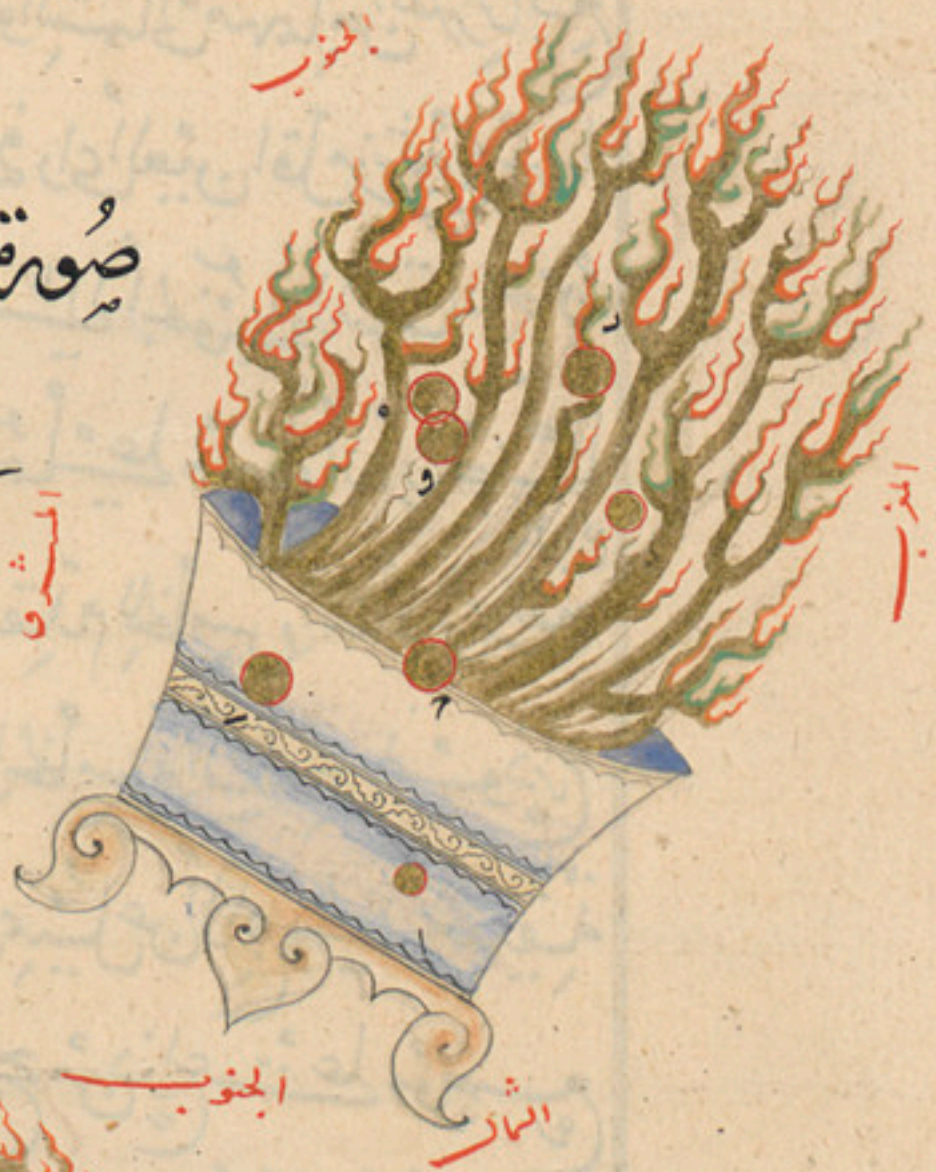 الجنوب
صورة
المشرق
المغرب
د
ه
و
ح
ر
ا
الجنوب
الشمال